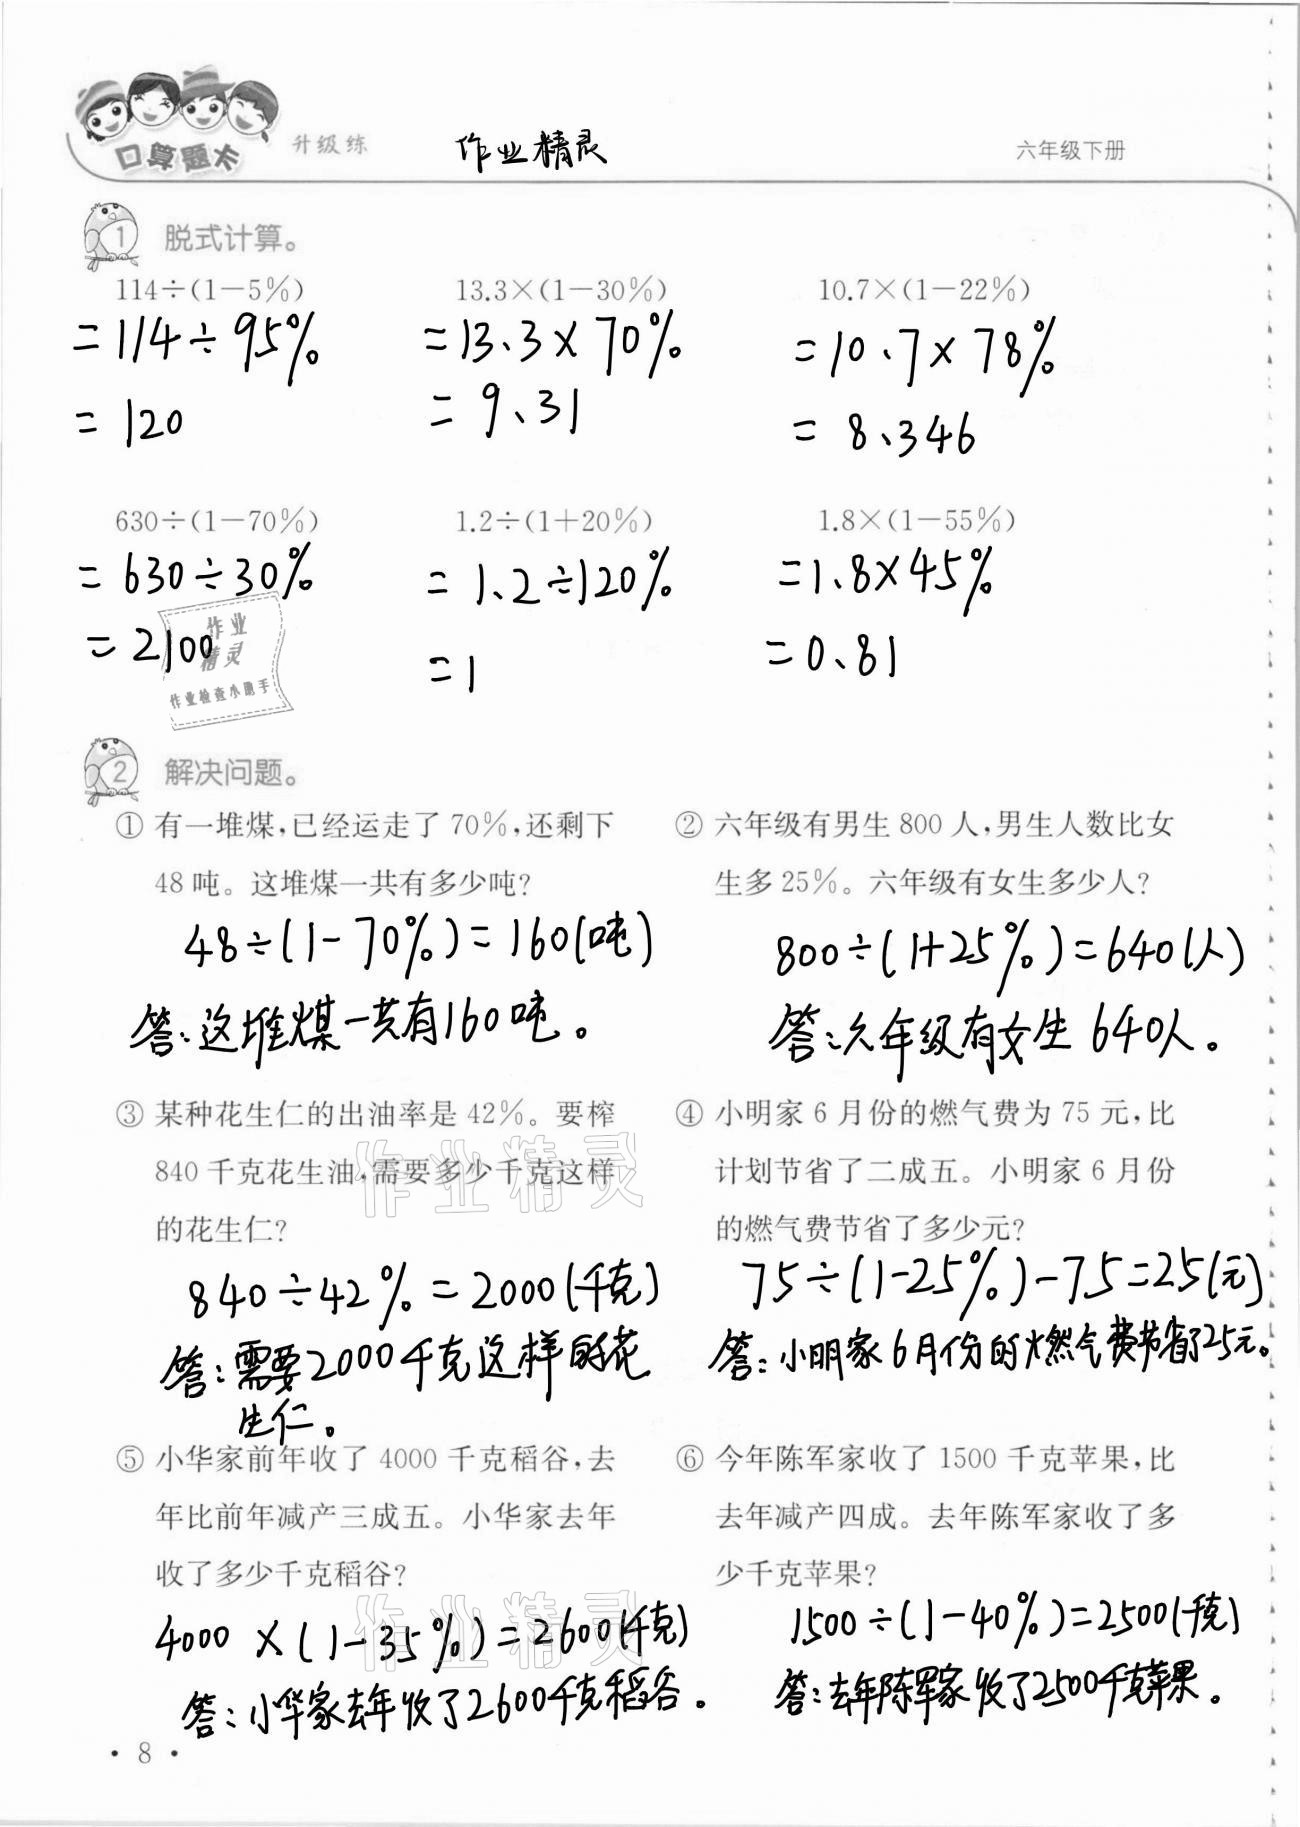 口算题卡 升级练 作业精灵 六年级下册
1 脱式计算。
114÷(1-5%) 13.3×(1-30%) 10.7×(1-22%)
=114÷95% =13.3×70% =10.7×78%
=120 =9.31 =8.346
630÷(1-70%) 1.2÷(1+20%) 1.8×(1-55%)
=630÷30% =1.2÷120% =1.8×45%
=2100 =1 =0.81
作业
精灵
作业检查小助手
2 解决问题。
① 有一堆煤,已经运走了70%,还剩下
48吨。这堆煤一共有多少吨?
48÷(1-70%)=160(吨)
答:这堆煤一共有160吨。
② 六年级有男生800人,男生人数比女
生多25%。六年级有女生多少人?
800÷(1+25%)=640(人)
答:六年级有女生640人。
③ 某种花生仁的出油率是42%。要榨
840千克花生油,需要多少千克这样
的花生仁?
作业精灵
840÷42%=2000(千克)
答:需要2000千克这样的花
生仁。
④ 小明家6月份的燃气费为75元,比
计划节省了二成五。小明家6月份
的燃气费节省了多少元?
75÷(1-25%)-75=25(元)
答:小明家6月份的燃气费节省了25元。
⑤ 小华家前年收了4000千克稻谷,去
年比前年减产三成五。小华家去年
收了多少千克稻谷?
作业精灵
4000×(1-35%)=2600(千克)
答:小华家去年收了2600千克稻谷。
⑥ 今年陈军家收了1500千克苹果,比
去年减产四成。去年陈军家收了多
少千克苹果?
1500÷(1-40%)=2500(千克)
答:去年陈军家收了2500千克苹果。
·8·